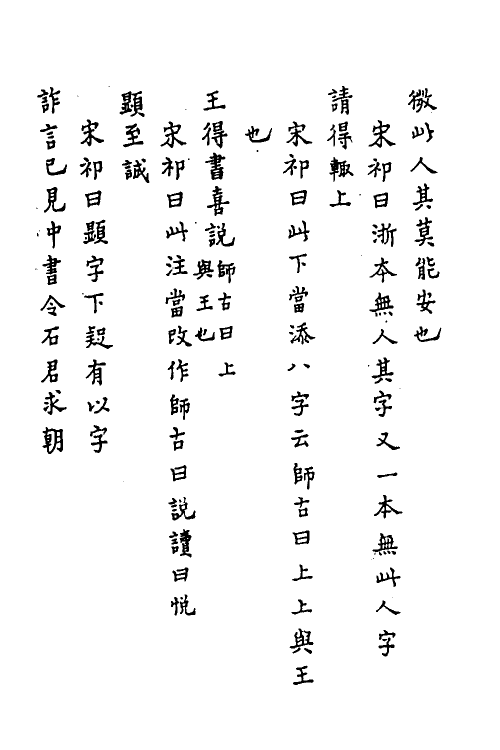 微此人其莫能安也
宋祁曰浙本無人其字又一本無此人字
請得輙上
宋祁曰此下當添八字云師古曰上上與王
也
王得書喜說師古曰上
與王也
宋祁曰此注當改作師古曰説讀曰悦
顯至誠
宋祁曰顯字下疑有以字
詐言已見中書令石君求朝